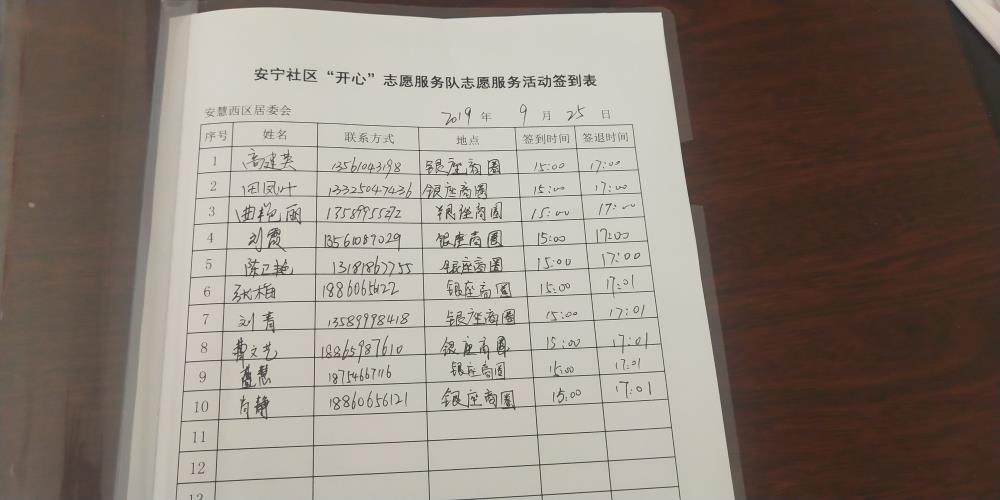 安宁社区“开心”志愿服务队志愿服务活动签到表
安慧西区居委会 2019 年 9 月 25 日
序号 姓名 联系方式 地点 签到时间 签退时间
1 高建英 13561043198 银座商圈 15:00 17:00
2 田凤叶 13325047436 银座商圈 15:00 17:00
3 曲艳丽 13589955272 银座商圈 15:00 17:00
4 刘霞 13561087029 银座商圈 15:00 17:00
5 陈卫艳 13181867755 银座商圈 15:00 17:00
6 张梅 银座商圈 15:00 17:01
7 刘青 13589998418 银座商圈 15:00 17:01
8 曹文艺 18865987610 银座商圈 15:00 17:01
9 18754667116 银座商圈 15:00 17:01
10 肖静 18860656121 银座商圈 15:00 17:01
11
12
13